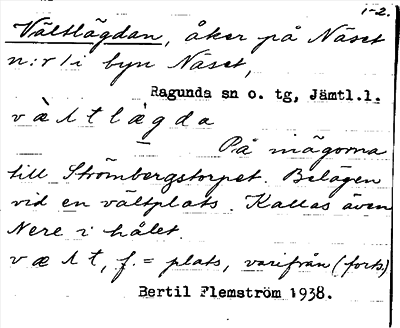 1-2.
Vältlägdan, åker på Näset
n:r 1 i byn Näset,
Ragunda sn o. tg, Jämtl.l.
væ̀ltlæ̀gda
På mägorna
till Strömbergstorpet. Belägen
vid en vältplats. Kallas även
Nere i hålet.
væ lt, f. = plats, varifrån (forts)
Bertil Flemström 1938.